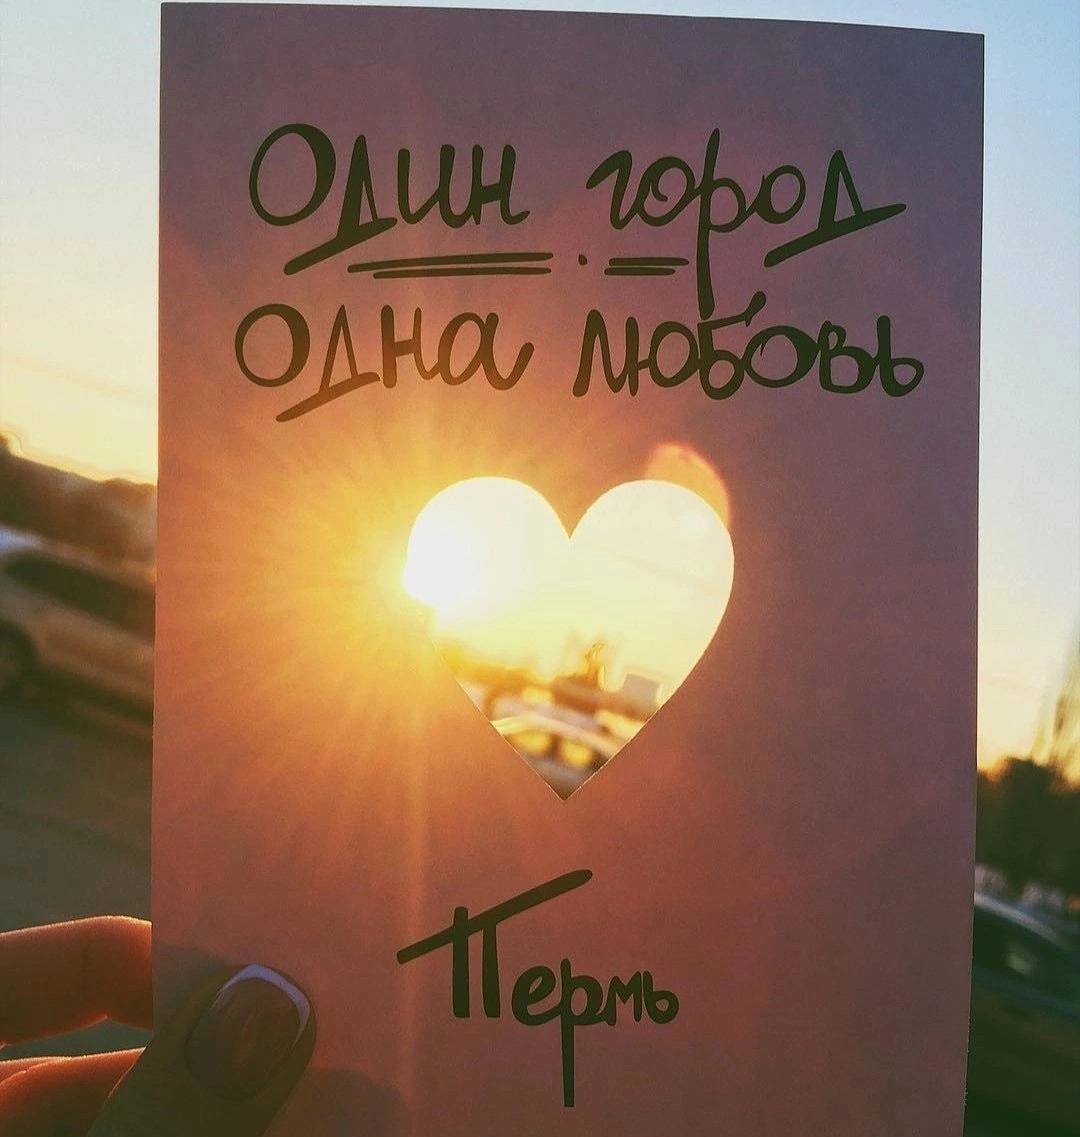 Один город
одна любовь
Пермь